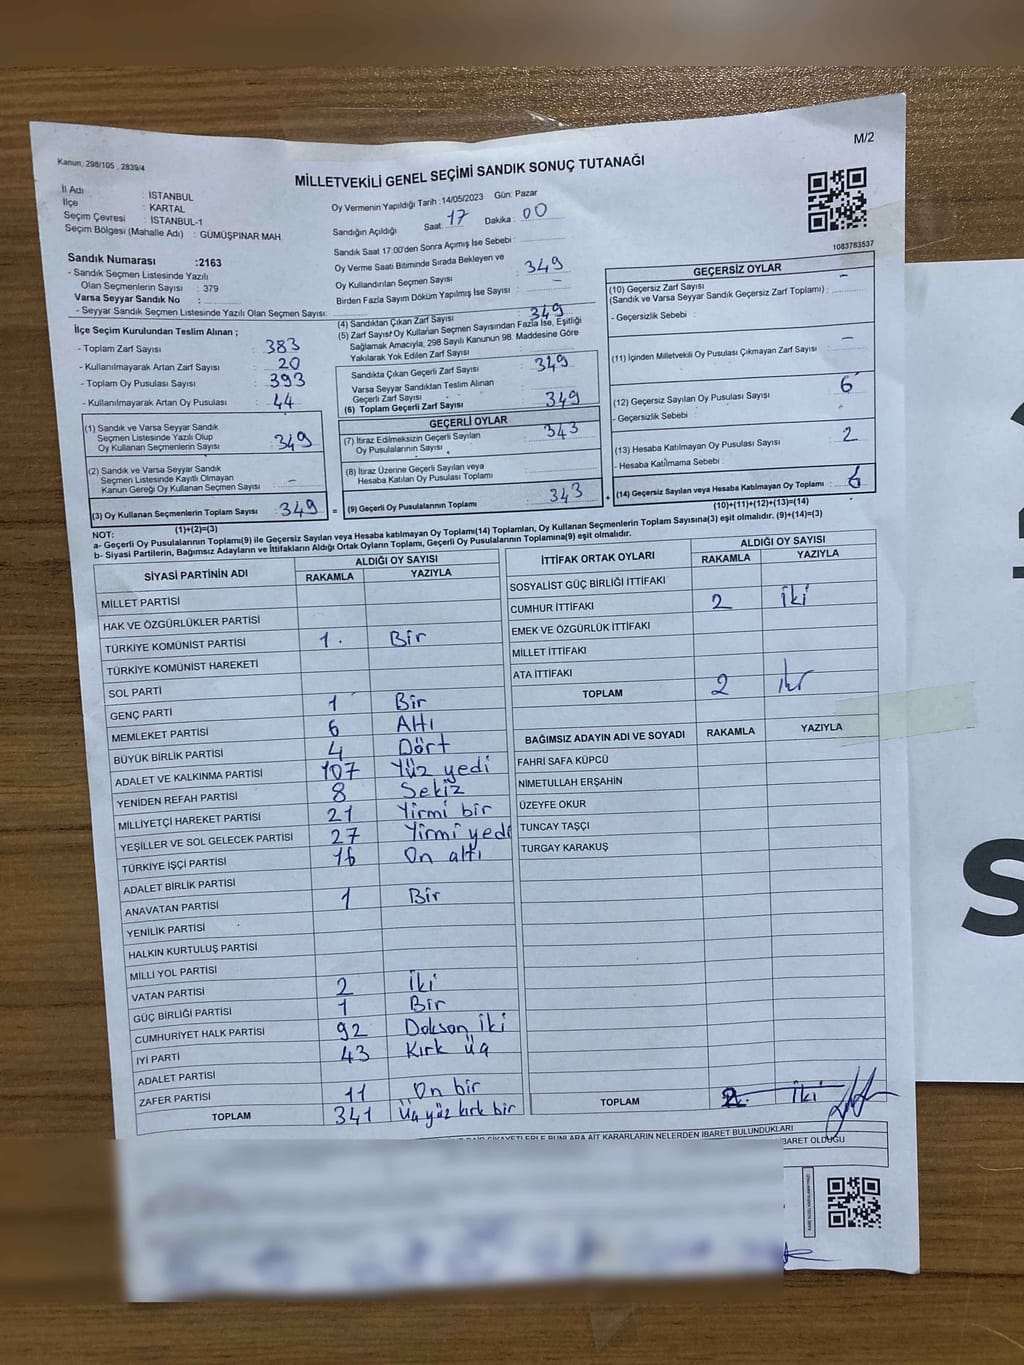 M/2
Kanun; 298/105 , 2839/4
MİLLETVEKİLİ GENEL SEÇİMİ SANDIK SONUÇ TUTANAĞI
İl Adı : İSTANBUL
İlçe : KARTAL
Seçim Çevresi : İSTANBUL-1
Seçim Bölgesi (Mahalle Adı) : GÜMÜŞPINAR MAH.
Sandık Numarası :2163
- Sandık Seçmen Listesinde Yazılı
Olan Seçmenlerin Sayısı : 379
Varsa Seyyar Sandık No :
- Seyyar Sandık Seçmen Listesinde Yazılı Olan Seçmen Sayısı:
Oy Vermenin Yapıldığı Tarih :14/05/2023 Gün: Pazar
Sandığın Açıldığı Saat: 17 Dakika : 00
Sandık Saat 17:00'den Sonra Açmış İse Sebebi :
Oy Verme Saati Bitiminde Sırada Bekleyen ve
Oy Kullandırılan Seçmen Sayısı : 349
Birden Fazla Sayım Döküm Yapılmış İse Sayısı : -
1083783537
İlçe Seçim Kurulundan Teslim Alınan ;
- Toplam Zarf Sayısı : 383
- Kullanılmayarak Artan Zarf Sayısı : 20
- Toplam Oy Pusulası Sayısı : 393
- Kullanılmayarak Artan Oy Pusulası : 44
(1) Sandık ve Varsa Seyyar Sandık
Seçmen Listesinde Yazılı Olup
Oy Kullanan Seçmenlerin Sayısı : 349
(2) Sandık ve Varsa Seyyar Sandık
Seçmen Listesinde Kayıtlı Olmayan
Kanun Gereği Oy Kullanan Seçmen Sayısı : -
(3) Oy Kullanan Seçmenlerin Toplam Sayısı : 349
(1)+(2)=(3)
(4) Sandıktan Çıkan Zarf Sayısı : 349
(5) Zarf Sayısı Oy Kullanan Seçmen Sayısından Fazla İse, Eşitliği
Sağlamak Amacıyla, 298 Sayılı Kanunun 98. Maddesine Göre
Yakılarak Yok Edilen Zarf Sayısı :
Sandıkta Çıkan Geçerli Zarf Sayısı : 349
Varsa Seyyar Sandıktan Teslim Alınan
Geçerli Zarf Sayısı :
(6) Toplam Geçerli Zarf Sayısı : 349
GEÇERLİ OYLAR
(7) İtiraz Edilmeksizin Geçerli Sayılan
Oy Pusulalarının Sayısı : 343
(8) İtiraz Üzerine Geçerli Sayılan veya
Hesaba Katılan Oy Pusulası Toplamı :
= (9) Geçerli Oy Pusulalarının Toplamı : 343 +
GEÇERSİZ OYLAR
(10) Geçersiz Zarf Sayısı
(Sandık ve Varsa Seyyar Sandık Geçersiz Zarf Toplamı) : -
- Geçersizlik Sebebi :
(11) İçinden Milletvekili Oy Pusulası Çıkmayan Zarf Sayısı : -
(12) Geçersiz Sayılan Oy Pusulası Sayısı : 6
- Geçersizlik Sebebi :
(13) Hesaba Katılmayan Oy Pusulası Sayısı : 2
- Hesaba Katılmama Sebebi :
(14) Geçersiz Sayılan veya Hesaba Katılmayan Oy Toplamı : 6
(10)+(11)+(12)+(13)=(14)
NOT:
a- Geçerli Oy Pusulalarının Toplamı(9) ile Geçersiz Sayılan veya Hesaba Katılmayan Oy Toplamı(14) Toplamları, Oy Kullanan Seçmenlerin Toplam Sayısına(3) eşit olmalıdır. (9)+(14)=(3)
b- Siyasi Partilerin, Bağımsız Adayların ve İttifakların Aldığı Ortak Oyların Toplamı, Geçerli Oy Pusulalarının Toplamına(9) eşit olmalıdır.
SİYASİ PARTİNİN ADI ALDIĞI OY SAYISI
RAKAMLA YAZIYLA
MİLLET PARTİSİ
HAK VE ÖZGÜRLÜKLER PARTİSİ
TÜRKİYE KOMÜNİST PARTİSİ 1. Bir
TÜRKİYE KOMÜNİST HAREKETİ
SOL PARTİ
GENÇ PARTİ 1 Bir
MEMLEKET PARTİSİ 6 Altı
BÜYÜK BİRLİK PARTİSİ 4 Dört
ADALET VE KALKINMA PARTİSİ 107 Yüz yedi
YENİDEN REFAH PARTİSİ 8 Sekiz
MİLLİYETÇİ HAREKET PARTİSİ 21 Yirmi bir
YEŞİLLER VE SOL GELECEK PARTİSİ 27 Yirmi yedi
TÜRKİYE İŞÇİ PARTİSİ 16 On altı
ADALET BİRLİK PARTİSİ
ANAVATAN PARTİSİ 1 Bir
YENİLİK PARTİSİ
HALKIN KURTULUŞ PARTİSİ
MİLLİ YOL PARTİSİ
VATAN PARTİSİ 2 İki
GÜÇ BİRLİĞİ PARTİSİ 1 Bir
CUMHURİYET HALK PARTİSİ 92 Doksan iki
İYİ PARTİ 43 Kırk üç
ADALET PARTİSİ
ZAFER PARTİSİ 11 On bir
TOPLAM 341 Üç yüz kırk bir
İTTİFAK ORTAK OYLARI ALDIĞI OY SAYISI
RAKAMLA YAZIYLA
SOSYALİST GÜÇ BİRLİĞİ İTTİFAKI
CUMHUR İTTİFAKI 2 İki
EMEK VE ÖZGÜRLÜK İTTİFAKI
MİLLET İTTİFAKI
ATA İTTİFAKI
TOPLAM 2 iki
BAĞIMSIZ ADAYIN ADI VE SOYADI RAKAMLA YAZIYLA
FAHRİ SAFA KÜPCÜ
NİMETULLAH ERŞAHİN
ÜZEYFE OKUR
TUNCAY TAŞÇI
TURGAY KARAKUŞ
TOPLAM 2. İki
ŞİKAYETLERLE BUNLARA AİT KARARLARIN NELERDEN İBARET BULUNDUKLARI
İBARET OLDUĞU
S